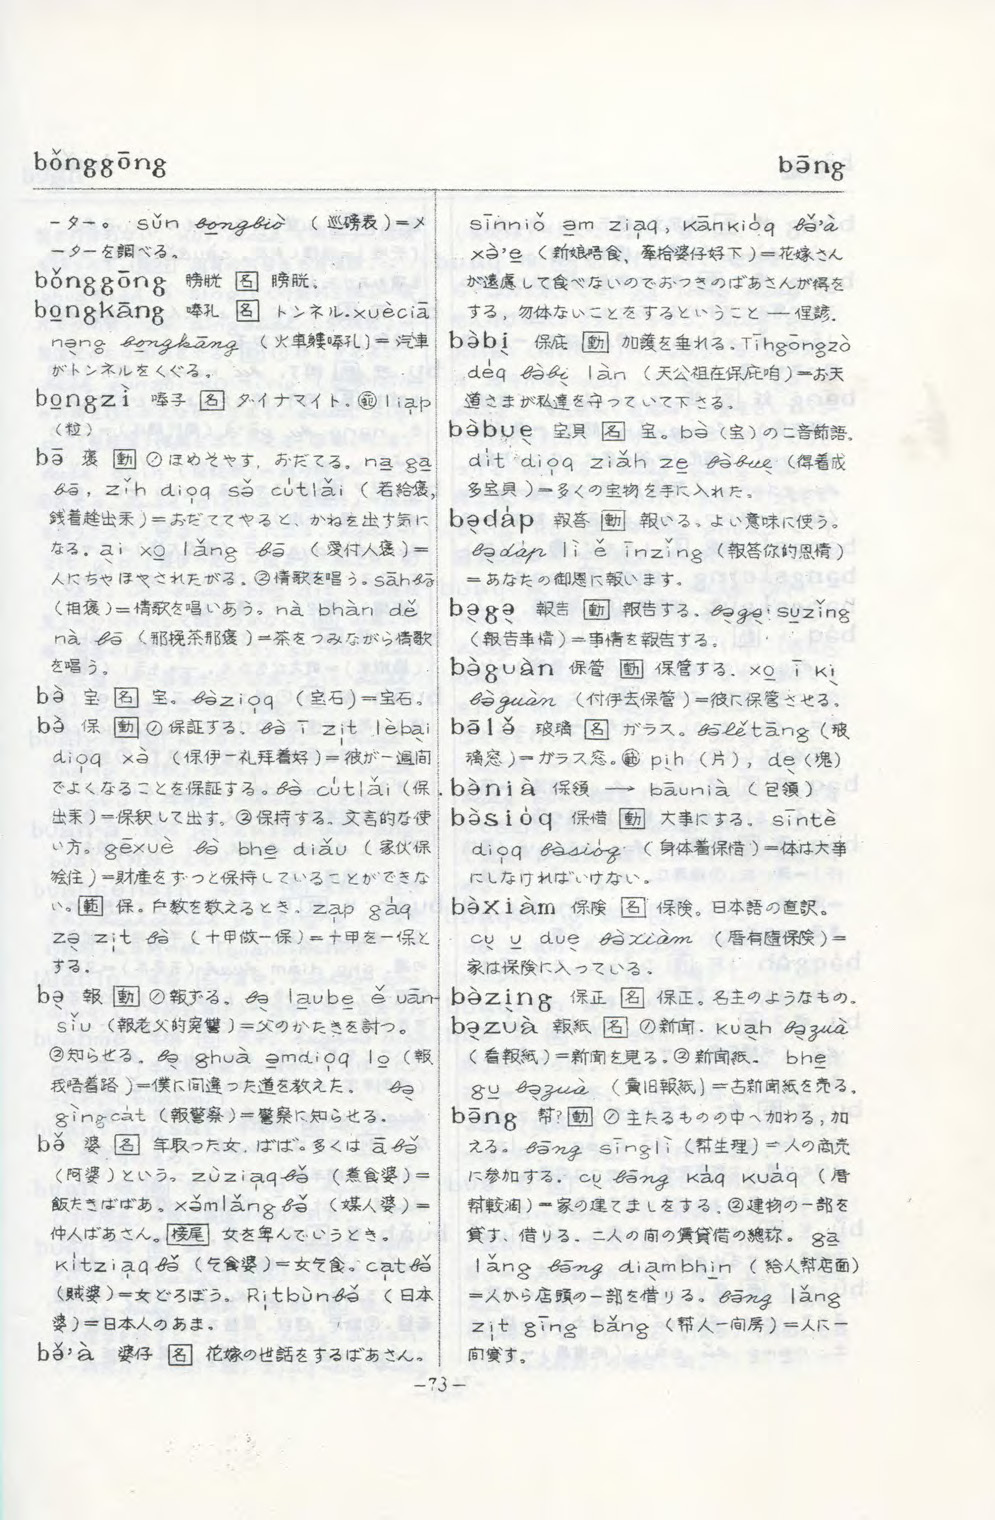 bǒnggōng
bāng
ーター。 sǔn bongbiò （巡磅表）＝メ
ーターを調べる。
bǒnggōng 膀胱 名 膀胱.
bo̱ngkāng 嗙孔 名 トンネル.xuèciā
nəng bongkāng （火車軁嗙孔）＝汽車
がトンネルをくぐる。
bo̱ngzì 嗙子 名 ダイナマイト. 範 liap
（粒）
bə̄ 褒 動 ①ほめそやす, おだてる。na̱ ga̱
bə̄, zi̍h dioq sə̌ cu̍tlǎi （若給褒,
銭着趖出来）＝おだててやると, かねを出す気に
なる. ai xo̱ lǎng bə̄ （愛付人褒）＝
人にちやほやされたがる. ②情歌を唱う. sāhbə̄
（相褒）＝情歌を唱いあう。nà bhàn dě
nà bə̄ （那挽茶那褒）＝茶をつみながら情歌
を唱う。
bə̀ 宝 名 宝。bə̀zioq （宝石）＝宝石。
bə̀ 保 動 ①保証する. bə̀ ī zit lèbai
dioq xə̀ （保伊一礼拜着好）＝彼が一週間
でよくなることを保証する。bə̀ cu̍tlǎi （保
出来）＝保釈して出す。②保持する. 文言的な使
い方。gēxuè bə̀ bhe̱ diǎu （家伙保
𣍐住）＝財産をずっと保持していることができな
い。範 保。戸数を数えるとき. zap ga̍q
zə zit bə̀ （十甲做一保）＝十甲を一保と
する.
bə 報 動 ①報ずる. bə laube̱ ě uān-
siǔ （報老父的寃讐）＝父のかたきを討つ。
②知らせる. bə ghuà ə̱mdioq lo̱ （報
我唔着路）＝僕に間違った道を教えた. bə
gìngca̍t （報警察）＝警察に知らせる.
bə̌ 婆 名 年取った女. ばば。多くは ābə̌
（阿婆）という。zùziaqbə̌ （煮食婆）＝
飯たきばばあ。xə̌mlǎngbə̌ （媒人婆）＝
仲人ばあさん。接尾 女を卑んでいうとき。
ki̍tziaqbə̌ （乞食婆）＝女乞食。catbə̌
（賊婆）＝女どろぼう。Ri̍tbùnbə̌ （日本
婆）＝日本人のあま.
bə̌'à 婆仔 名 花嫁の世話をするばあさん。
sīnniǒ ə̱m ziaq, kānkio̍q bə̌'à
xə̀'e̱ （新娘唔食, 牽拾婆仔好下）＝花嫁さん
が遠慮して食べないのでおつきのばあさんが得を
する, 勿体ないことをするということ — 俚諺.
bə̀bi 保庇 動 加護を垂れる. Tīhgōngzò
de̍q bə̀bi làn （天公祖在保庇咱）＝お天
道さまが私達を守っていて下さる。
bə̀bue 宝貝 名 宝。bə̀（宝）の二音節語.
di̍t dioq ziǎh ze̱ bə̀bue （得着成
多宝貝）＝多くの宝物を手に入れた。
bəda̍p 報答 動 報いる。よい意味に使う。
bəda̍p lì ě īnzǐng （報答你的恩情）
＝あなたの御恩に報います。
bəgə 報告 動 報告する. bəgə suzǐng
（報告事情）＝事情を報告する.
bə̀guàn 保管 動 保管する. xo̱ ī ki
bə̀guàn （付伊去保管）＝彼に保管させる.
bālě 玻璃 名 ガラス。bālětāng （玻
璃窓）＝ガラス窓。範 pih （片）, de （塊）
bə̀nià 保領 → bāunià （包領）
bə̀sio̍q 保惜 動 大事にする. sīntè
dioq bə̀sio̍q （身体着保惜）＝体は大事
にしなければいけない。
bə̀xiàm 保険 名 保険。日本語の直訳。
cu u̱ due bə̀xiàm （厝有隨保険）＝
家は保険に入っている.
bə̀zing 保正 名 保正。名主のようなもの。
bəzuà 報紙 名 ①新聞. kuah bəzuà
（看報紙）＝新聞を見る。②新聞紙. bhe̱
gu̱ bəzuà （賣旧報紙）＝古新聞紙を売る.
bāng 幇? 動 ①主たるものの中へ加わる, 加
える。bāng sīnglì （幇生理）＝人の商売
に参加する. cu bāng ka̍q kua̍q （厝
幇較濶）＝家の建てましをする. ②建物の一部を
貸す, 借りる. 二人の間の賃貸借の總称。ga̱
lǎng bāng diambhi̱n （給人幇店面）
＝人から店頭の一部を借りる。bāng lǎng
zit gīng bǎng （幇人一間房）＝人に一
間貸す。
-73-